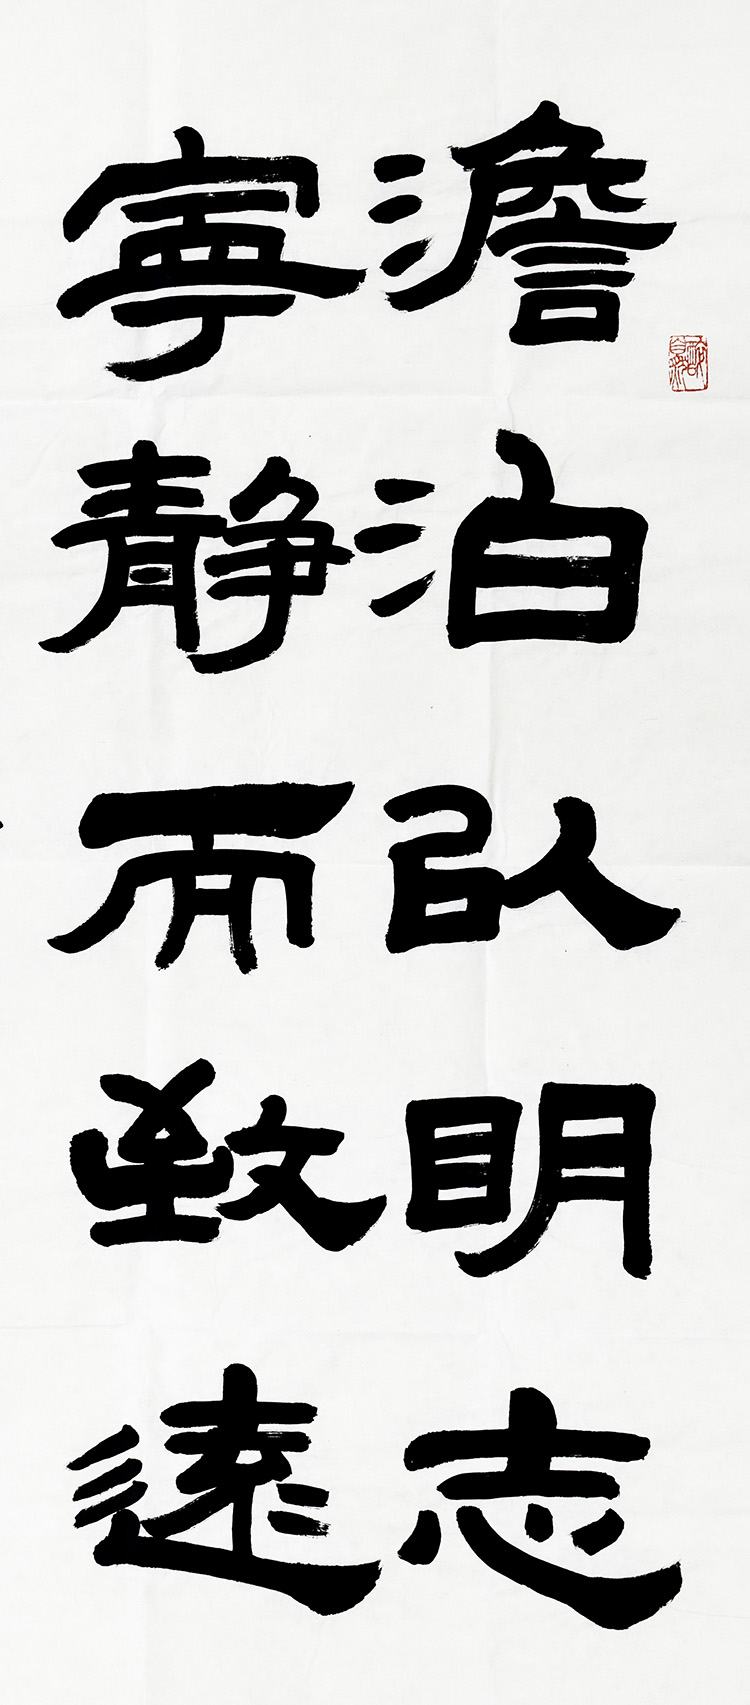 澹泊以明志
寧静而致遠